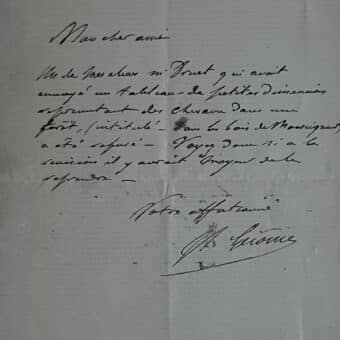 Mon cher ami
Un de mes élèves Mr Doucet qui avait
envoyé un tableau de petites dimensions
représentant des chevaux dans une
forêt, (intitulé - dans les bois de
a été refusé - Voyez donc si à la
révision il y aurait moyen de le
reprendre -
Votre affectionné
Gérôme